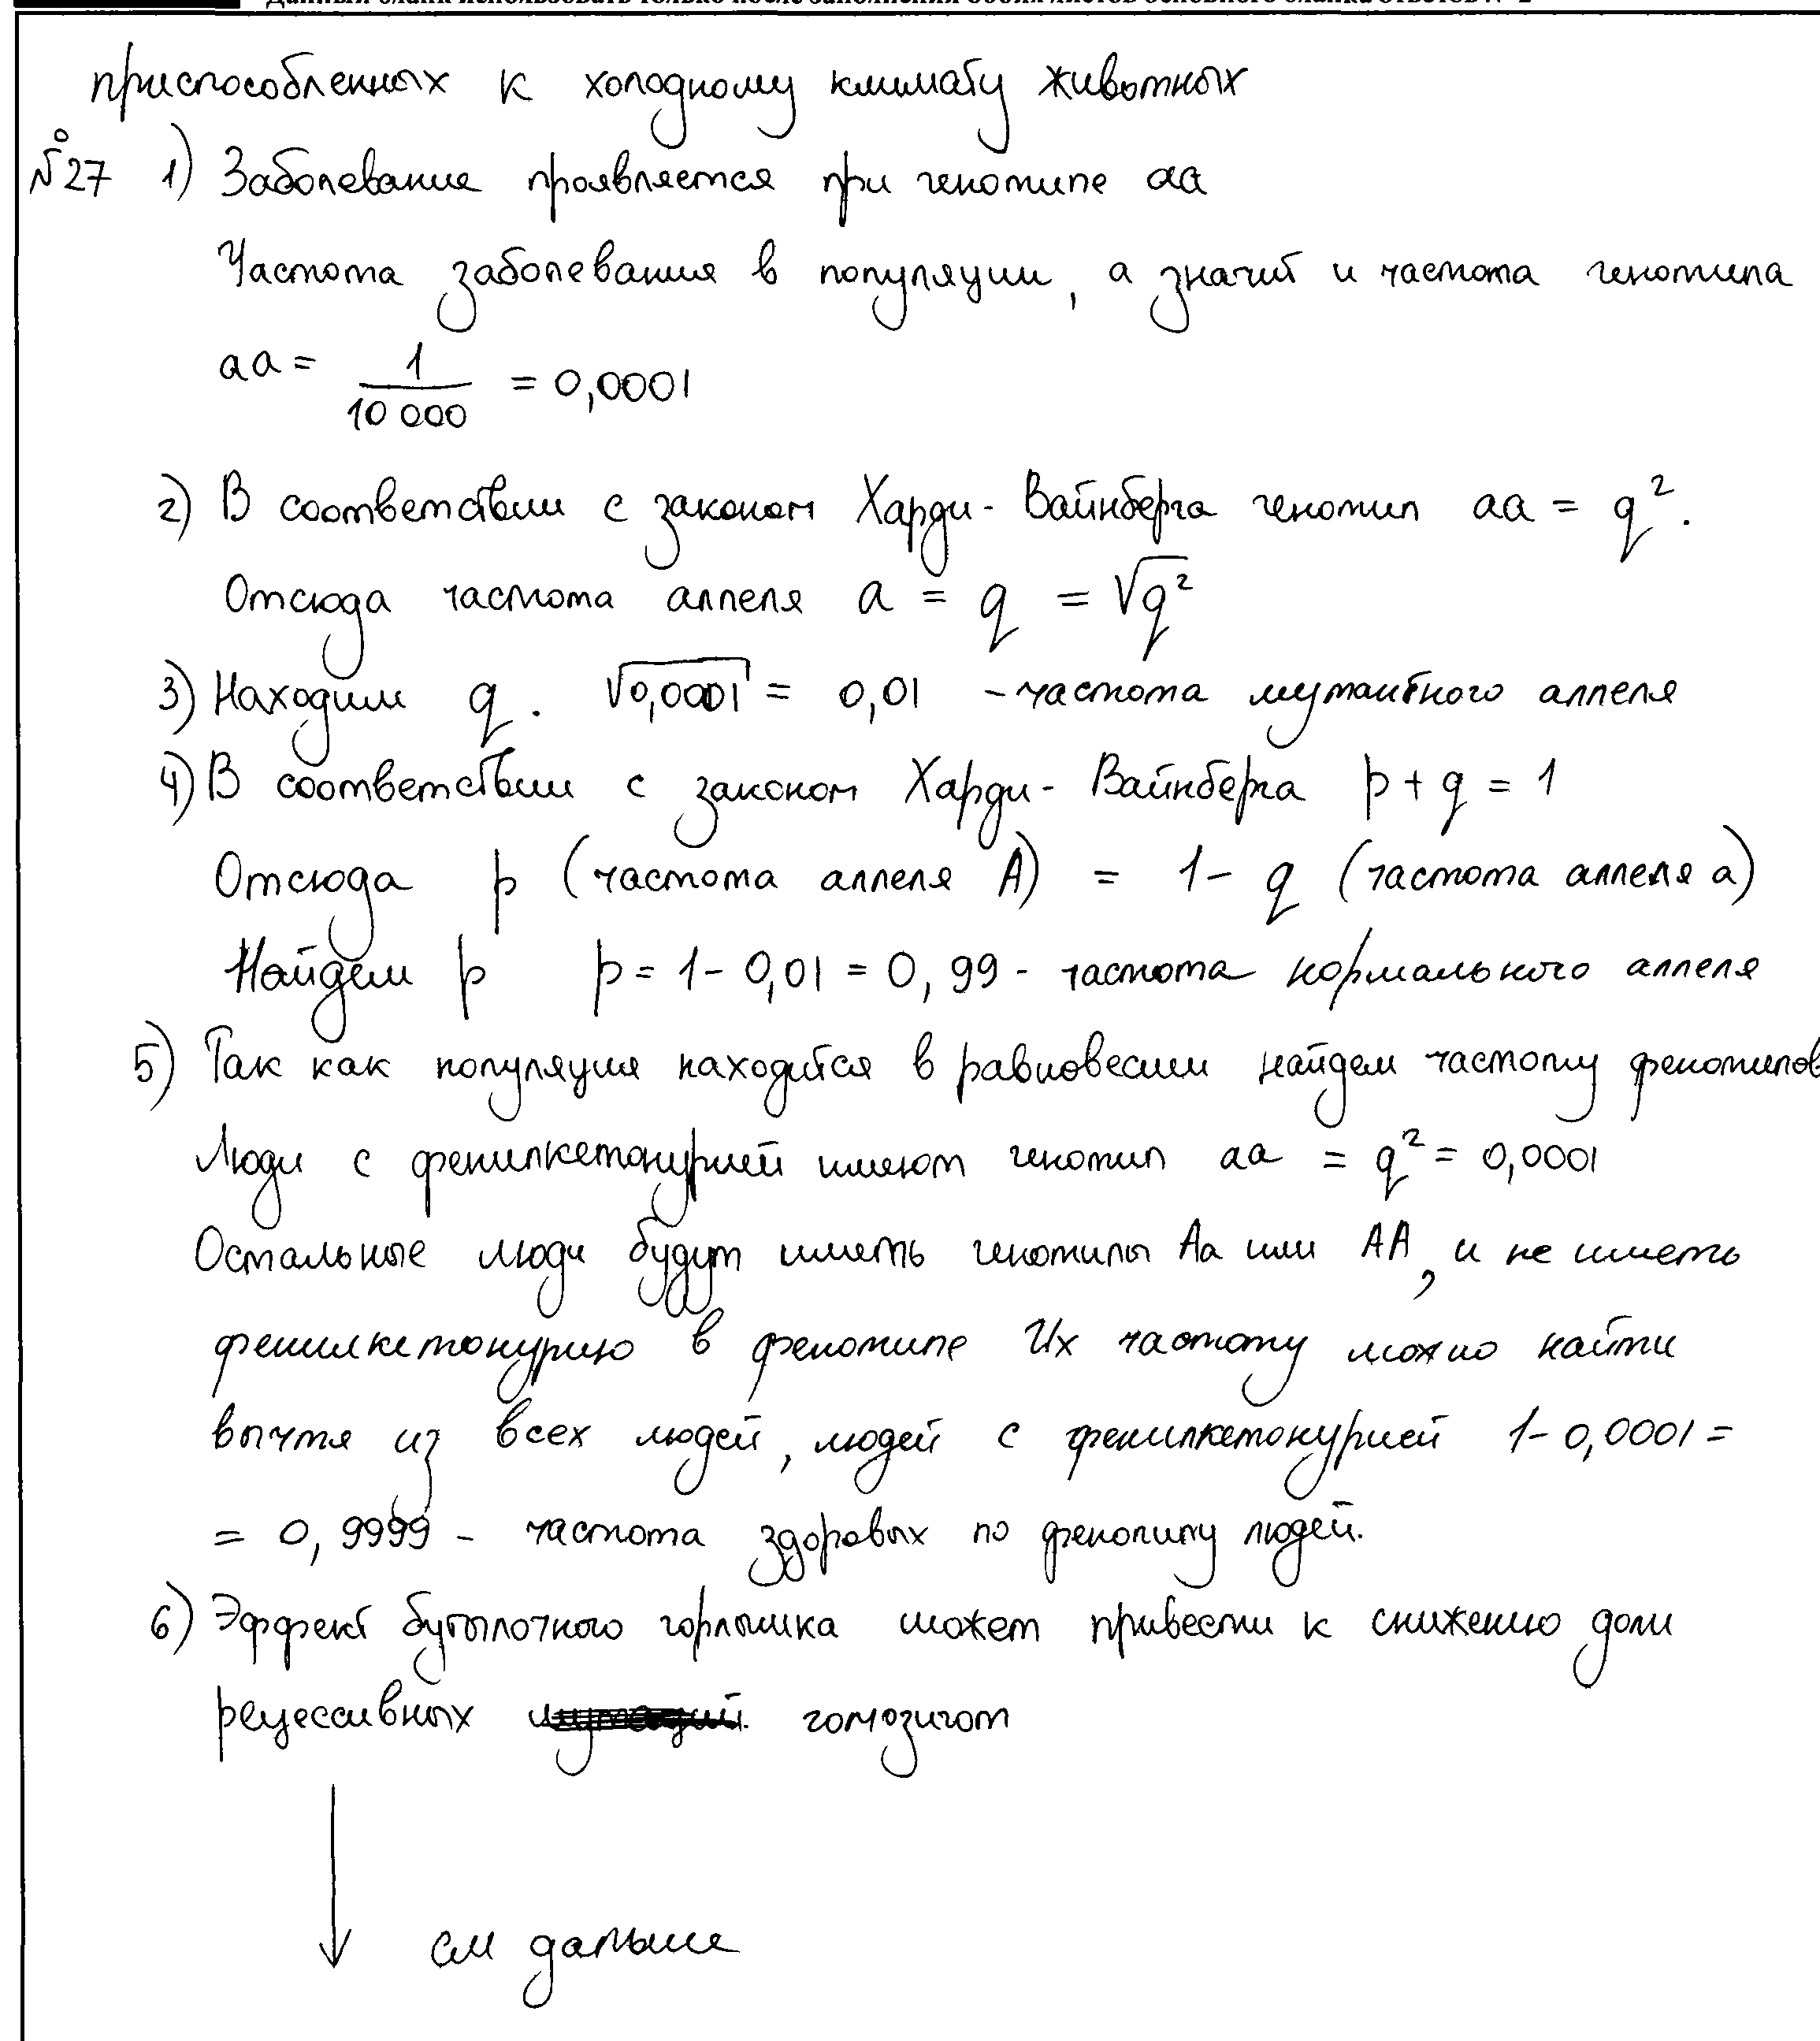 Данный бланк использовать только после заполнения обоих листов основного бланка ответов № 2
приспособленных к холодному климату животных
№27 1) Заболевание проявляется при генотипе аа
Частота заболевания в популяции, а значит и частота генотипа
аа = 1/10 000 = 0,0001
2) В соответствии с законом Харди-Вайнберга генотип аа = q².
Отсюда частота аллеля а = q = √q²
3) Находим q. √0,0001 = 0,01 - частота мутантного аллеля
4) В соответствии с законом Харди-Вайнберга p + q = 1
Отсюда p (частота аллеля А) = 1 - q (частота аллеля а)
Найдем p p = 1 - 0,01 = 0,99 - частота нормального аллеля
5) Так как популяция находится в равновесии найдем частоту фенотипов
Люди с фенилкетонурией имеют генотип аа = q² = 0,0001
Остальные люди будут иметь генотипы Аа или АА, и не иметь
фенилкетонурию в фенотипе Их частоту можно найти
вычтя из всех людей, людей с фенилкетонурией 1 - 0,0001 =
= 0,9999 - частота здоровых по фенотипу людей.
6) Эффект бутылочного горлышка может привести к снижению доли
рецессивных гомозигот
см дальше